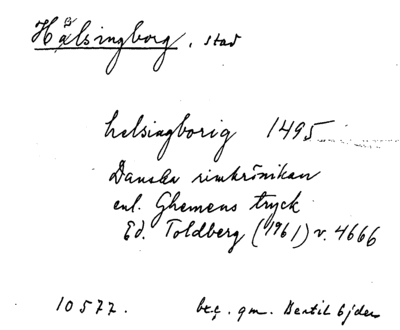 Hälsingborg, stad
helsingborig 1495
Danska rimkrönikan
enl. Ghemens tryck
Ed. Toldberg (1961) v. 4666
10577. exc. gm. Bertil Ejder